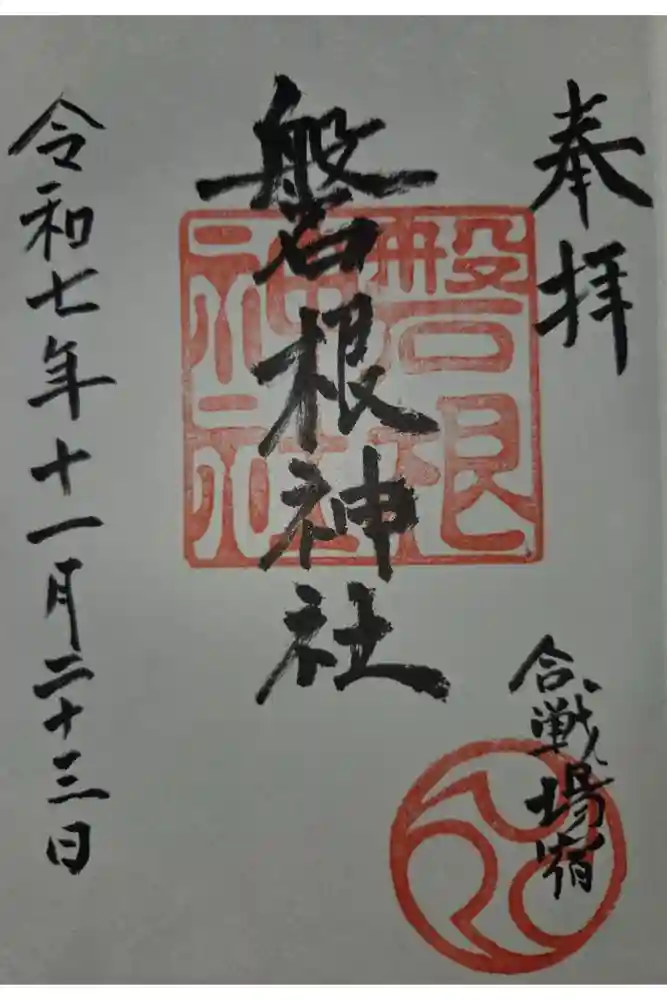 奉拝
合戦場宿
磐根神社
磐根
神社
令和七年十一月二十三日